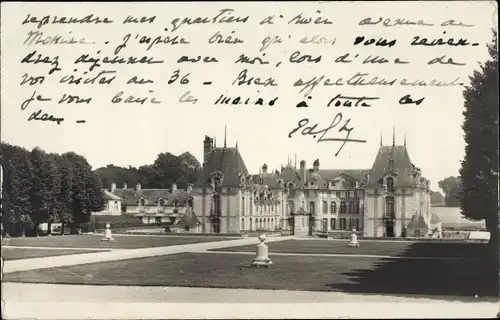 reprendre mes quartiers d'hiver avenue de
Messine, j'espère bien qu'alors vous revien-
drez déjeuner avec moi, lors d'une de
vos visites au 36 - Bien affectueusement
je vous baise les mains à toute les
deux -